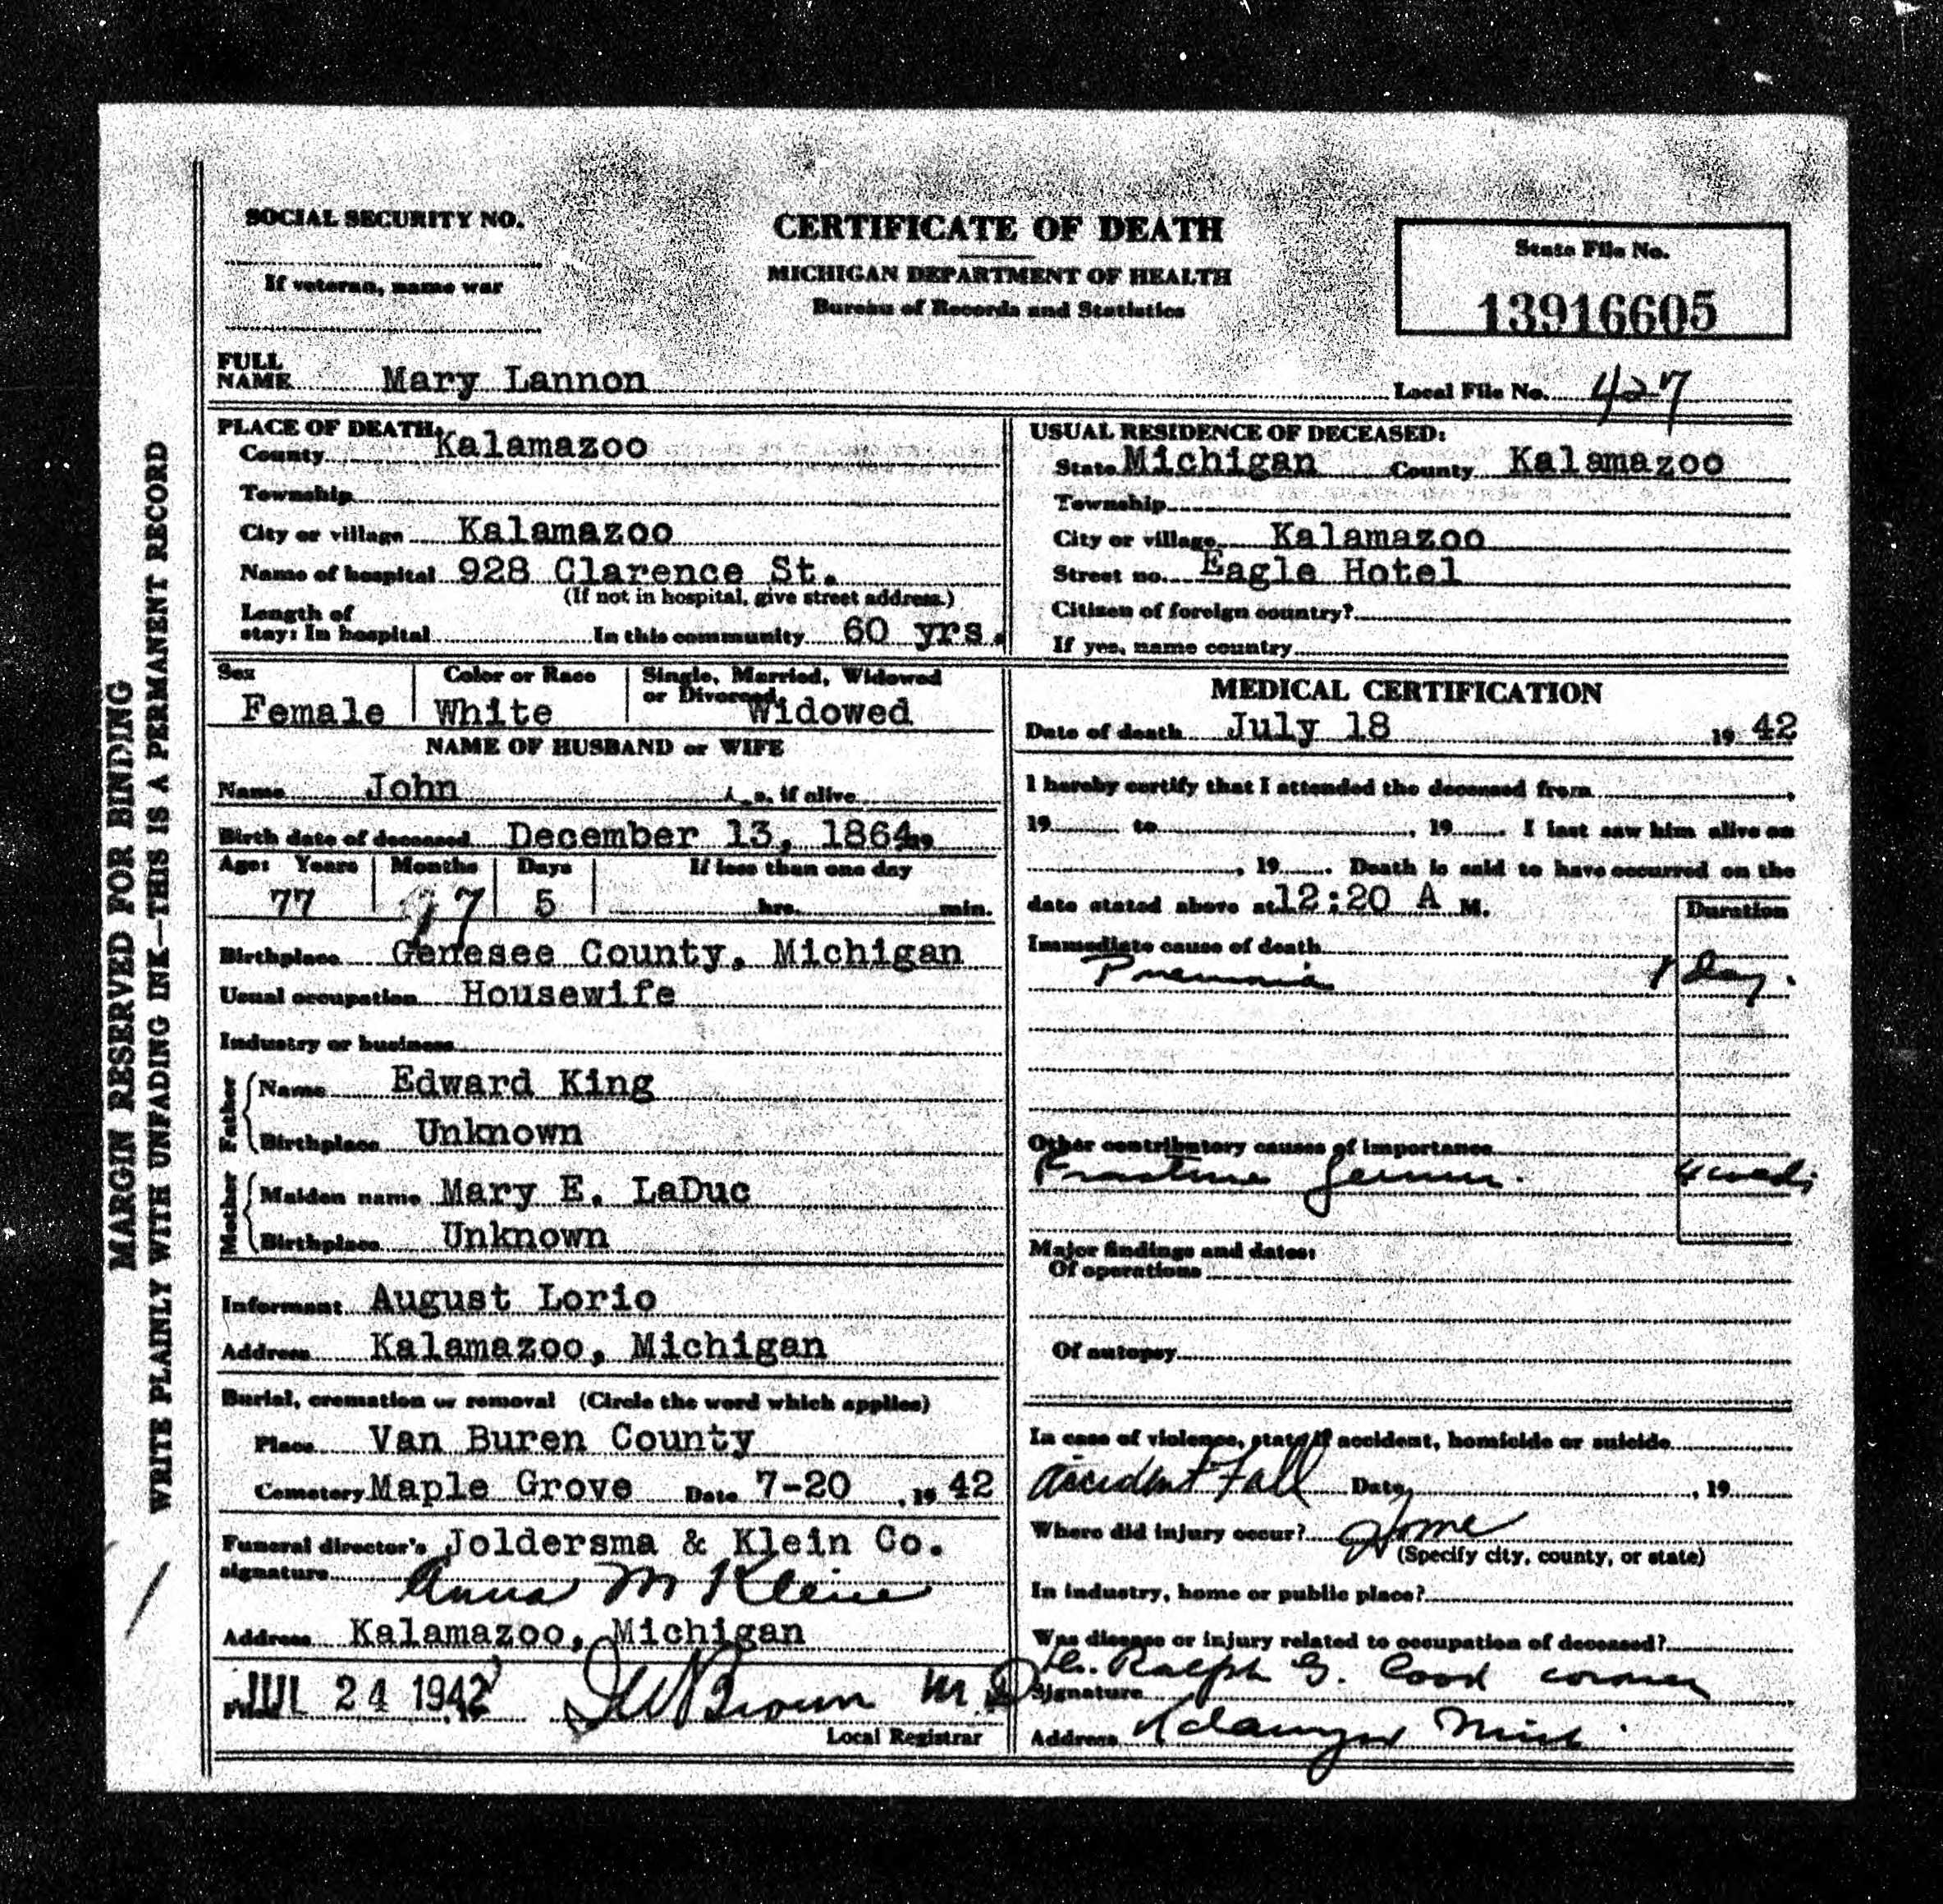 MARGIN RESERVED FOR BINDING
WRITE PLAINLY WITH UNFADING INK—THIS IS A PERMANENT RECORD
SOCIAL SECURITY NO.
If veteran, name war
CERTIFICATE OF DEATH
MICHIGAN DEPARTMENT OF HEALTH
Bureau of Records and Statistics
State File No.
13916605
FULL NAME Mary Lannon
Local File No. 427
PLACE OF DEATH:
County Kalamazoo
Township
City or village Kalamazoo
Name of hospital 928 Clarence St.
(If not in hospital, give street address.)
Length of
stay: In hospital In this community 60 yrs.
USUAL RESIDENCE OF DECEASED:
State Michigan County Kalamazoo
Township
City or village Kalamazoo
Street no. Eagle Hotel
Citizen of foreign country?
If yes, name country
Sex Color or Race Single, Married, Widowed
or Divorced
Female White Widowed
NAME OF HUSBAND or WIFE
Name John if alive
Birth date of deceased December 13, 1864
Age: Years Months Days If less than one day
77 7 5 hrs. min.
Birthplace Genesee County, Michigan
Usual occupation Housewife
Industry or business
Father
Name Edward King
Birthplace Unknown
Mother
Maiden name Mary E. LaDuc
Birthplace Unknown
Informant August Lorio
Address Kalamazoo, Michigan
Burial, cremation or removal (Circle the word which applies)
Place Van Buren County
Cemetery Maple Grove Date 7-20, 19 42
Funeral director's Joldersma & Klein Co.
signature Anna M Klein
Address Kalamazoo, Michigan
Filed JUL 24 1942 Brown M.D
Local Registrar
MEDICAL CERTIFICATION
Date of death July 18 19 42
I hereby certify that I attended the deceased from ,
19 to , 19 . I last saw him alive on
, 19 . Death is said to have occurred on the
date stated above at 12:20 A M.
Duration
Immediate cause of death
Pneumonia 1 Day.
Other contributory causes of importance
Fracture femur. 4 weeks
Major findings and dates:
Of operations
Of autopsy
In case of violence, state if accident, homicide or suicide
accident Fall Date , 19
Where did injury occur? Home
(Specify city, county, or state)
In industry, home or public place?
Was disease or injury related to occupation of deceased?
Signature Dr. Ralph G. Cook coroner
Address Kalamazoo Mich.